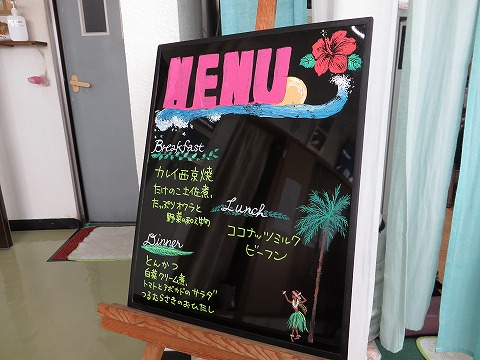 MENU
Breakfast
カレイ西京焼
たけのこ土佐煮
たっぷりオクラと
野菜の和え物
Lunch
ココナッツミルク
ビーフン
Dinner
とんかつ
白菜クリーム煮
トマトとアボカドのサラダ
つるむらさきのおひたし